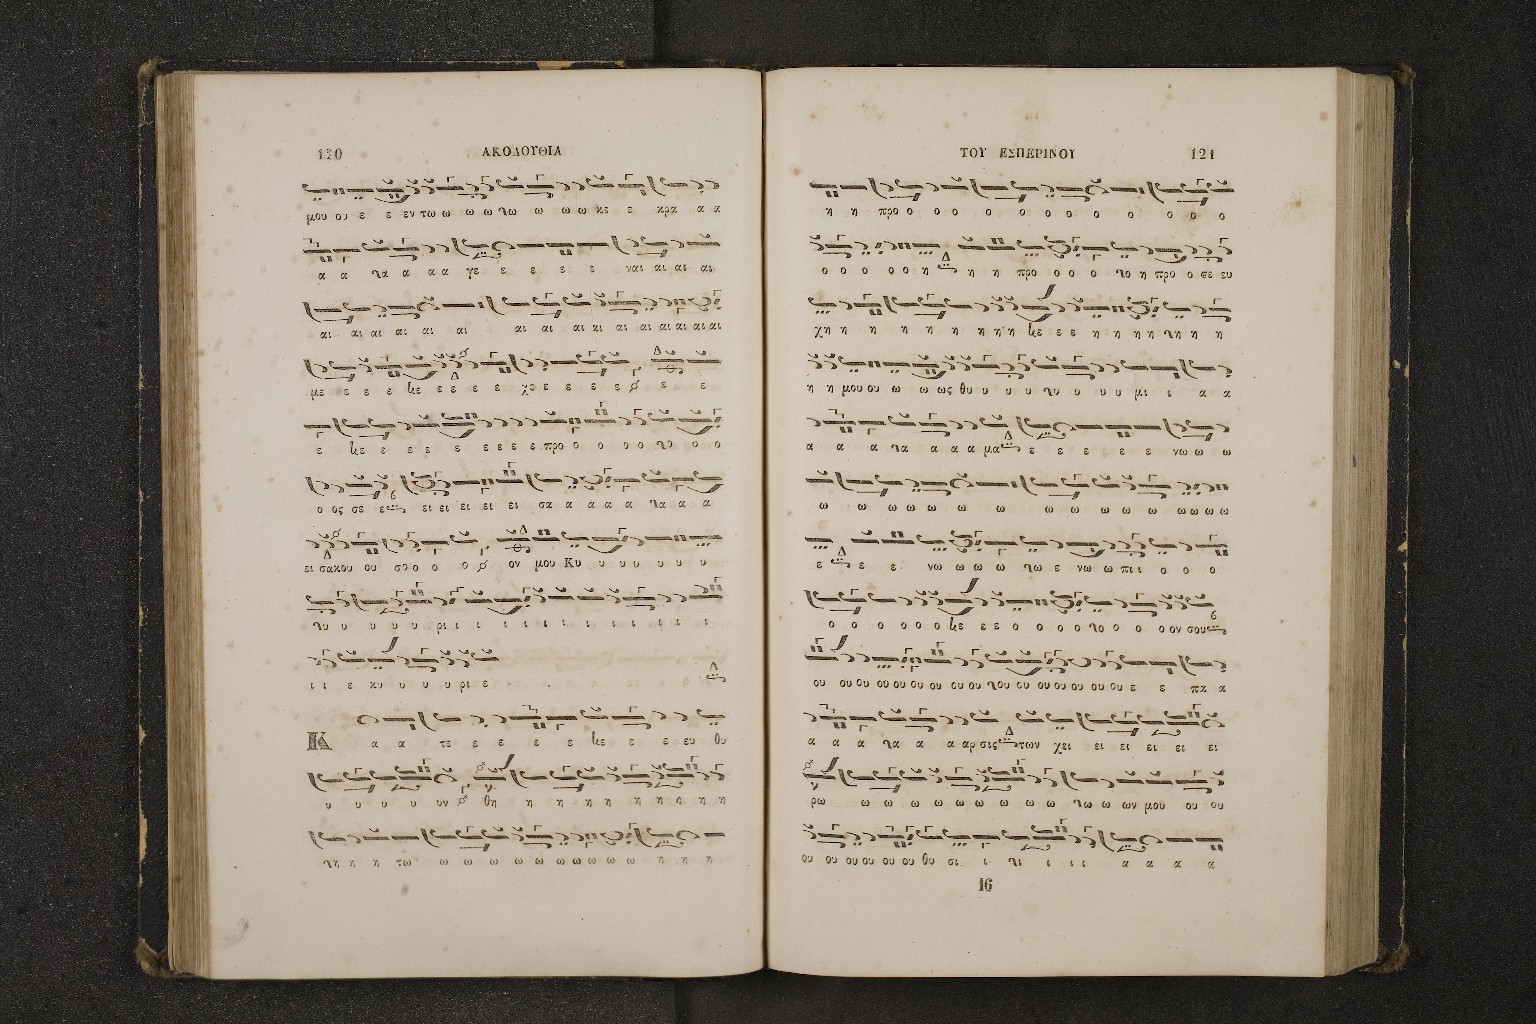 120
ΑΚΟΛΟΥΘΙΑ
μου ου ε ε εν τω ω ω ω γω ω ω ω κε ε κρα α α
α α γα α α α γε ε ε ε ε ναι αι αι αι
αι αι αι αι αι αι αι αι αι αι αι αι αι αι αι
με ε ε ε με ε ε ε ε χε ε ε ε ε ε ε
ε με ε ε ε ε ε ε ε ε προ ο ο ο ο γο ο ο
ο ος σε ε ει ει ει ει ει σα α α α α γα α α
ει σακου ου σο ο ο ο ον μου Κυ υ υ υ υ υ υ
γυ υ υ υ υ ρι ι ι ι ι ι ι ι ι ι ι
ι ι ε κυ υ υ υ ρι ε
Κ α α τε ε ε ε ε με ε ε ε ευ θυ
υ υ υ υ υν θη η η η η η η η η
γη η η τω ω ω ω ω ω ω ω ω ω η η η
ΤΟΥ ΕΣΠΕΡΙΝΟΥ
121
η η προ ο ο ο ο ο ο ο ο ο ο ο ο
ο ο ο ο ο η η η προ ο ο ο γο η προ ο σε ευ
χη η η η η η η η η με ε ε η η η η γη η η
η η μου ου ω ω ως θυ υ υ υ γυ υ υ υ μι ι α α
α α α γα α α α μα ε ε ε ε ε νω ω ω
ω ω ω ω ω ω ω ω ω ω ω ω ω ω ω
ε ε ε νω ω ω ω γω ε νω ω πι ι ο ο ο
ο ο ο ο ο ο με ε ε ο ο ο ο γο ο ο ο ον σου
ου ου ου ου ου ου ου ου ου γου ου ου ου ου ου ου ε ε πα α
α α α γα α α αρ σις των χει ει ει ει ει ει ει
ρω ω ω ω ω ω ω ω ω ω γω ω ων μου ου ου
ου ου ου ου ου ου θυ σι ι γι ι ι ι α α α α
16